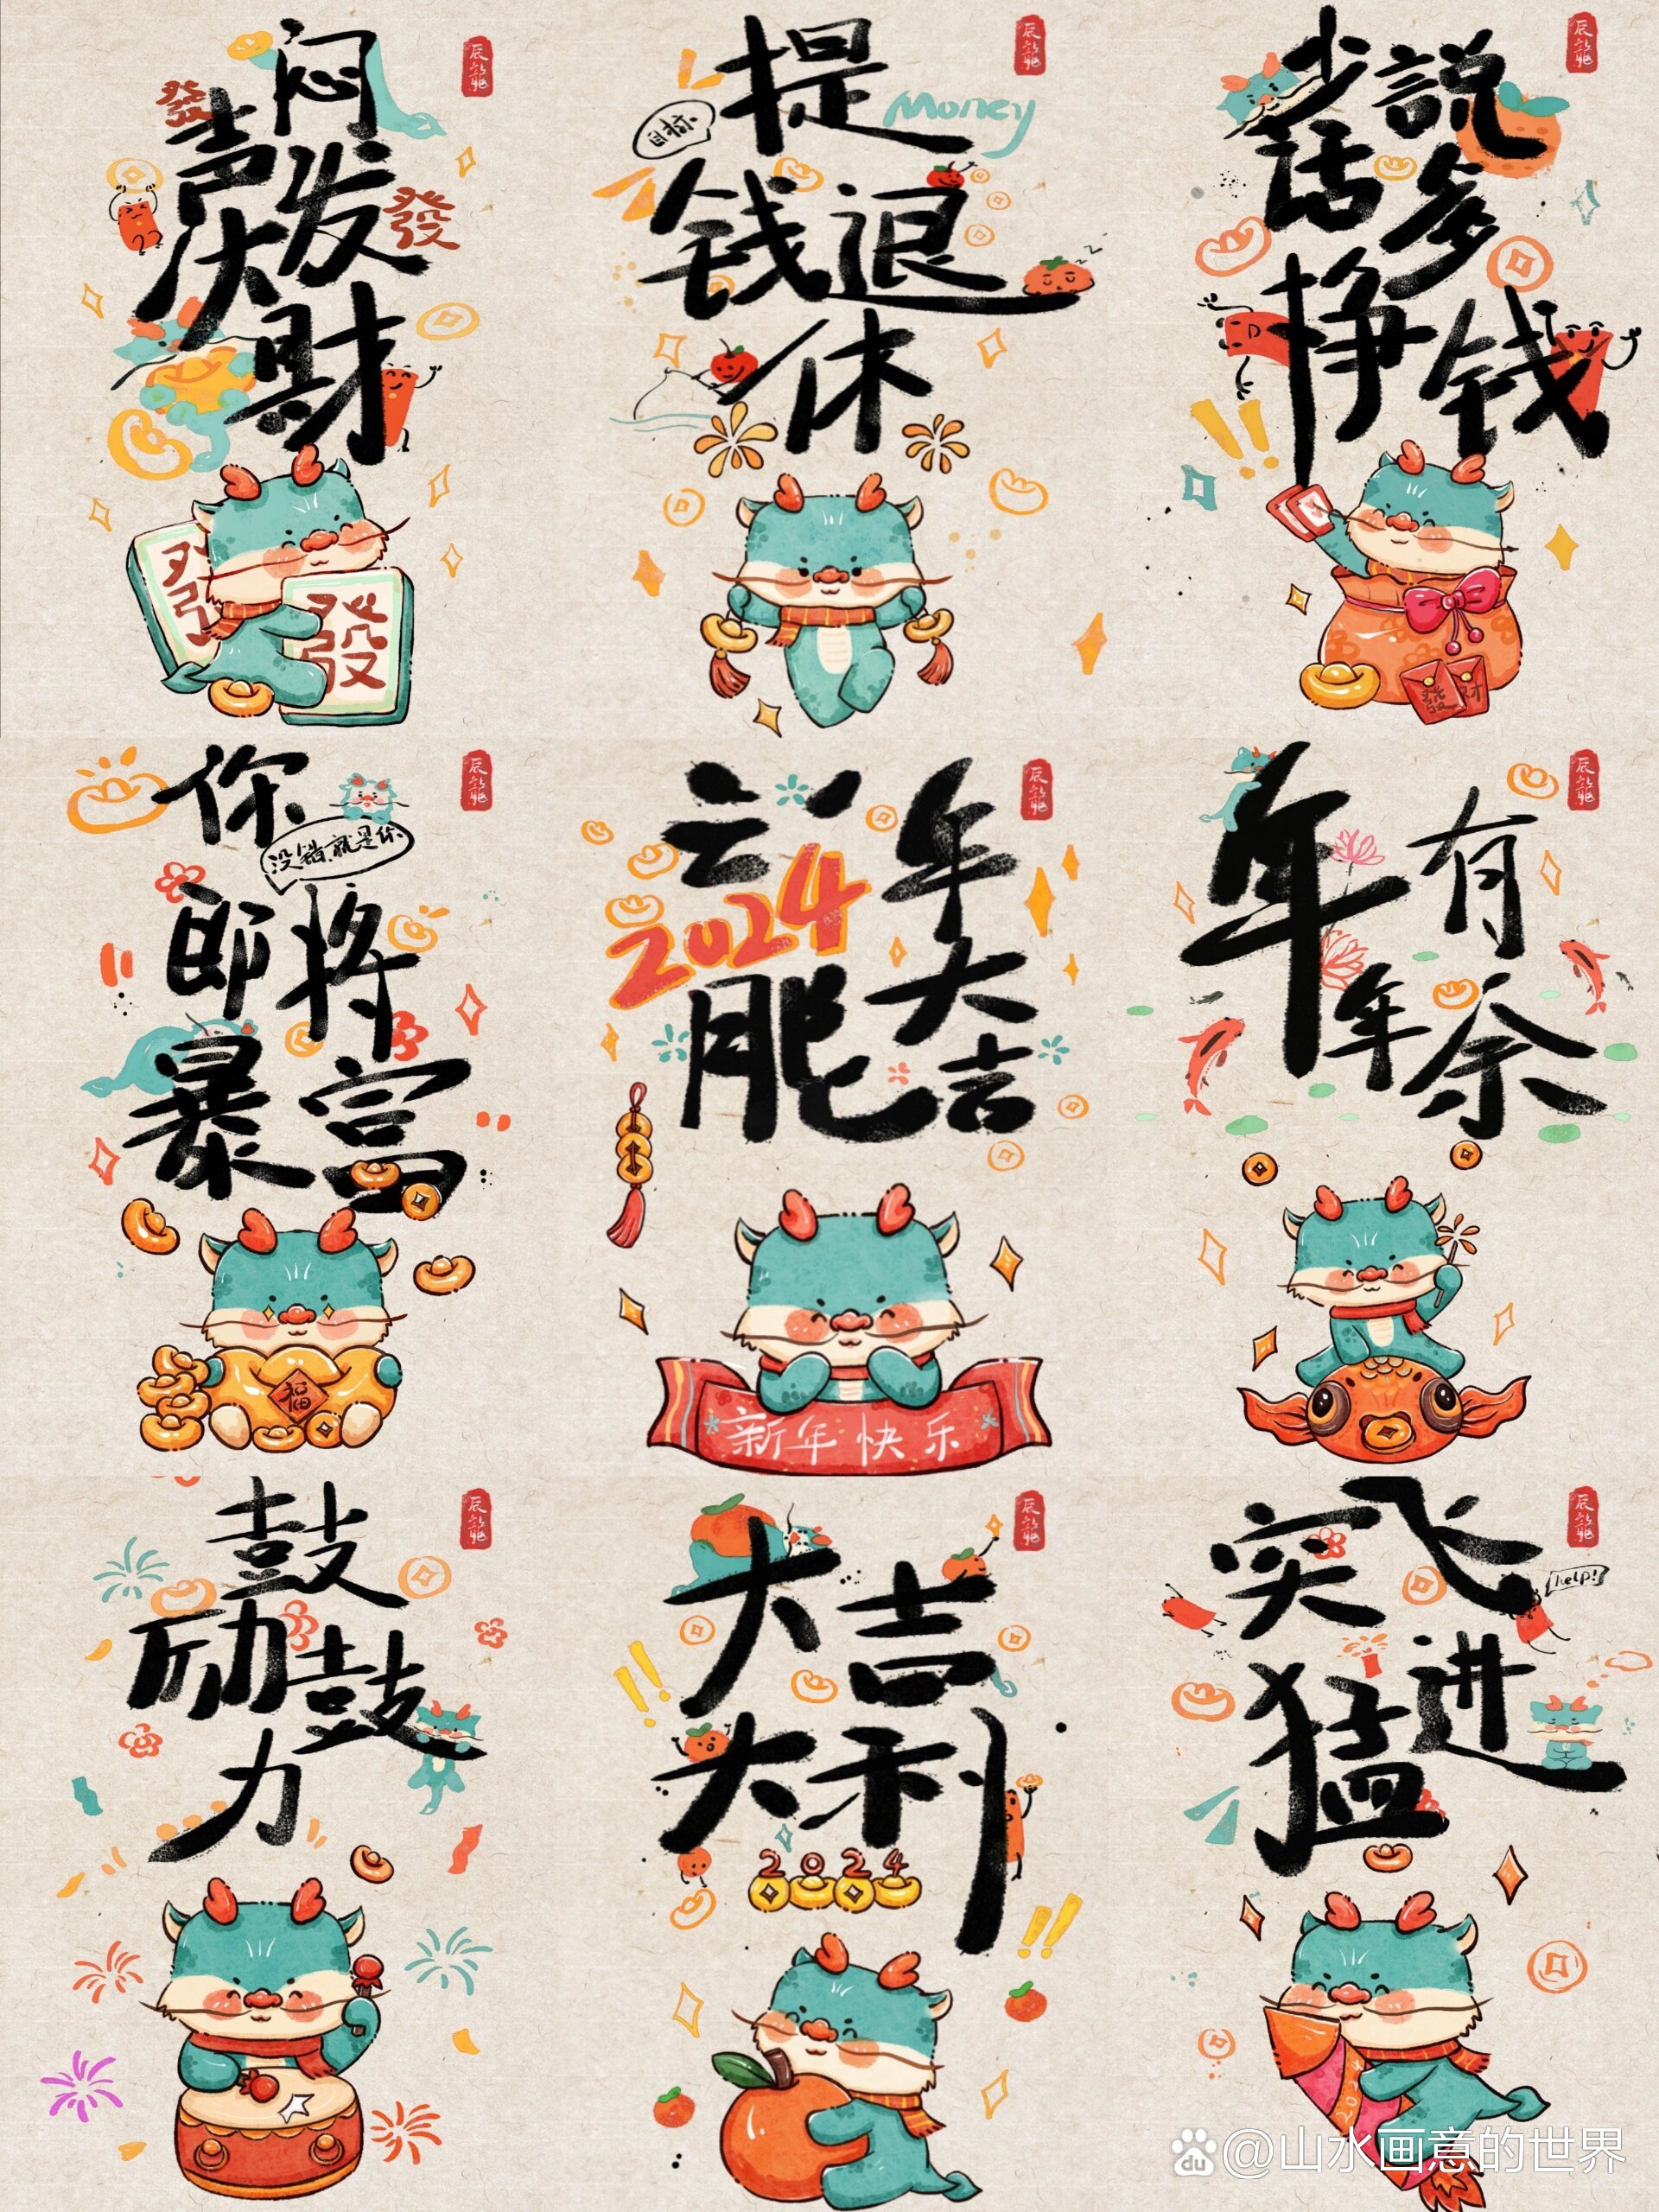 辰龍
闷
發
声发
發
大财
發
發
辰龍
提
目标
Money
钱退
休
辰龍
少説
话多
挣钱
發财
辰龍
你
没错就是你
即将
暴富
福
辰龍
2024
年
大吉
新年快乐
辰龍
年年
有余
辰龍
鼓
励鼓
力
辰龍
大吉
大利
2024
辰龍
突飞
help!
猛进
2024
du @山水画意的世界